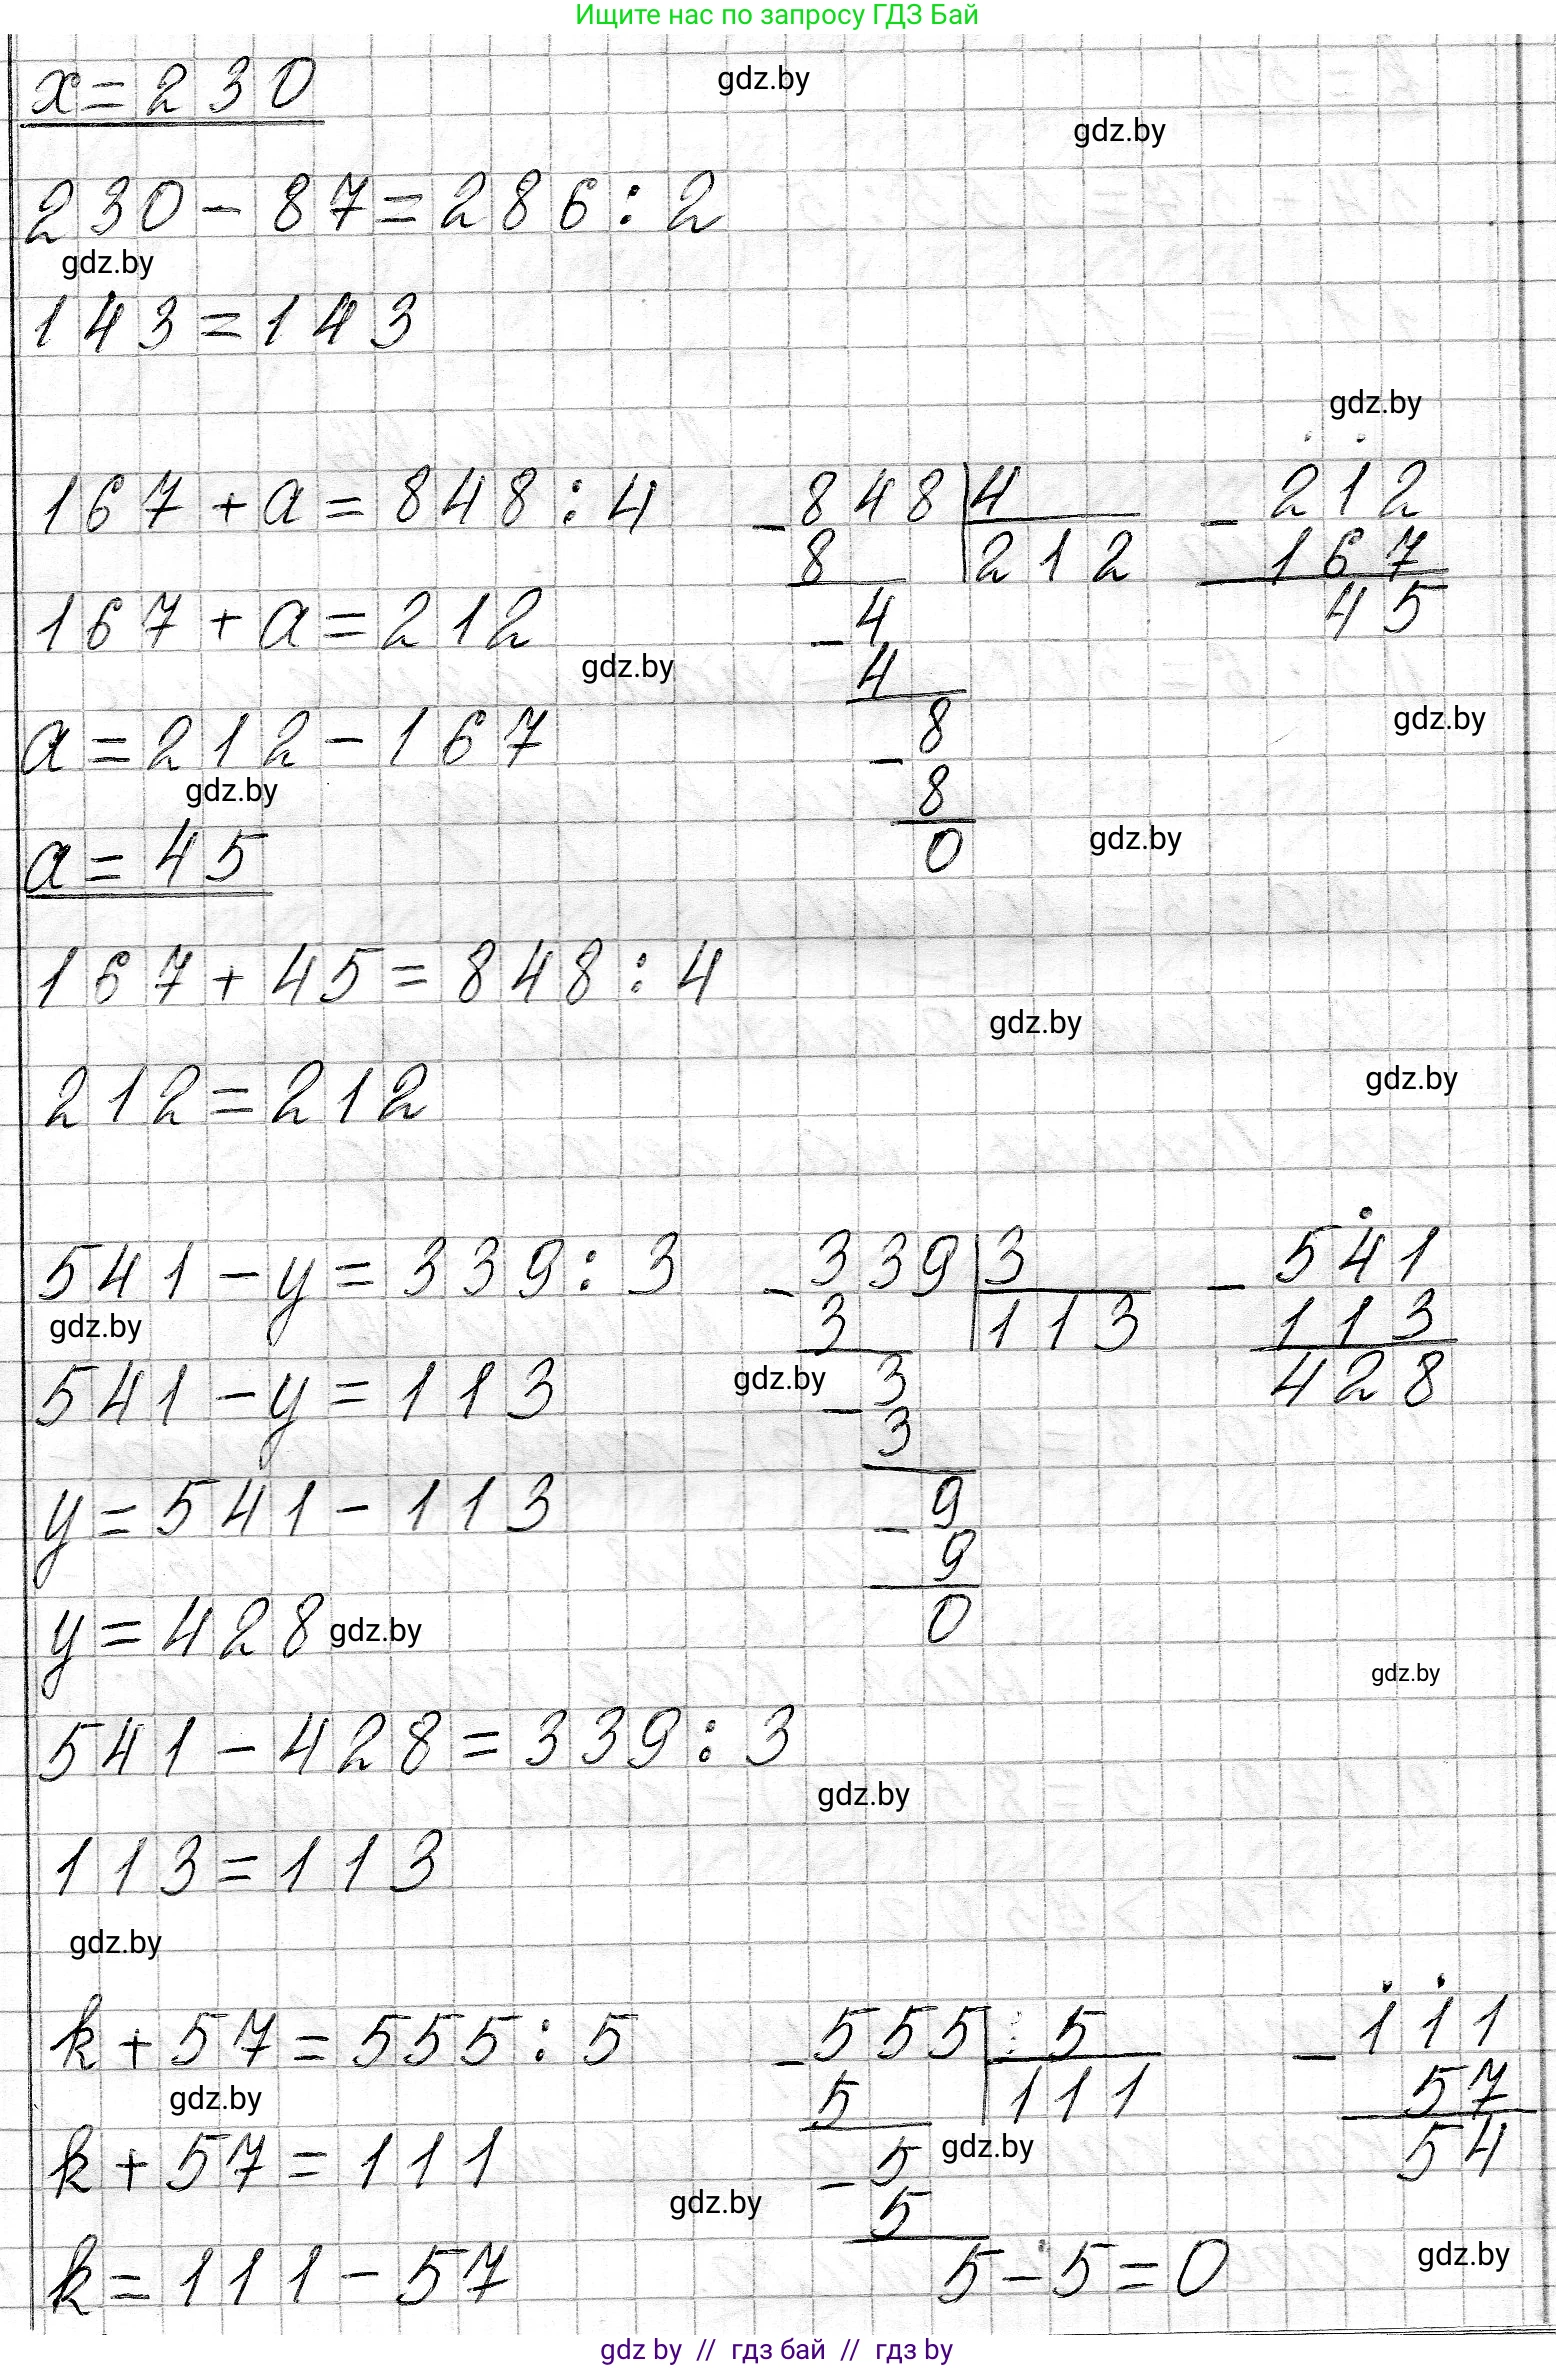 Ищите нас по запросу ГДЗ Бай
x=230
gdz.by
gdz.by
230-87=286:2
gdz.by
143=143
gdz.by
167+a=848:4
-848|4
8 212
-4
4
-8
8
0
-212
167
45
167+a=212
gdz.by
gdz.by
a=212-167
gdz.by
gdz.by
a=45
167+45=848:4
gdz.by
gdz.by
212=212
541-y=339:3
-339|3
3 113
-3
3
-9
9
0
-541
113
428
gdz.by
gdz.by
541-y=113
y=541-113
y=428
gdz.by
gdz.by
541-428=339:3
gdz.by
113=113
gdz.by
k+57=555:5
-555|5
5 111
-5
5
5-5=0
-111
57
54
gdz.by
gdz.by
k+57=111
gdz.by
gdz.by
k=111-57
gdz by // гдз бай // гдз by